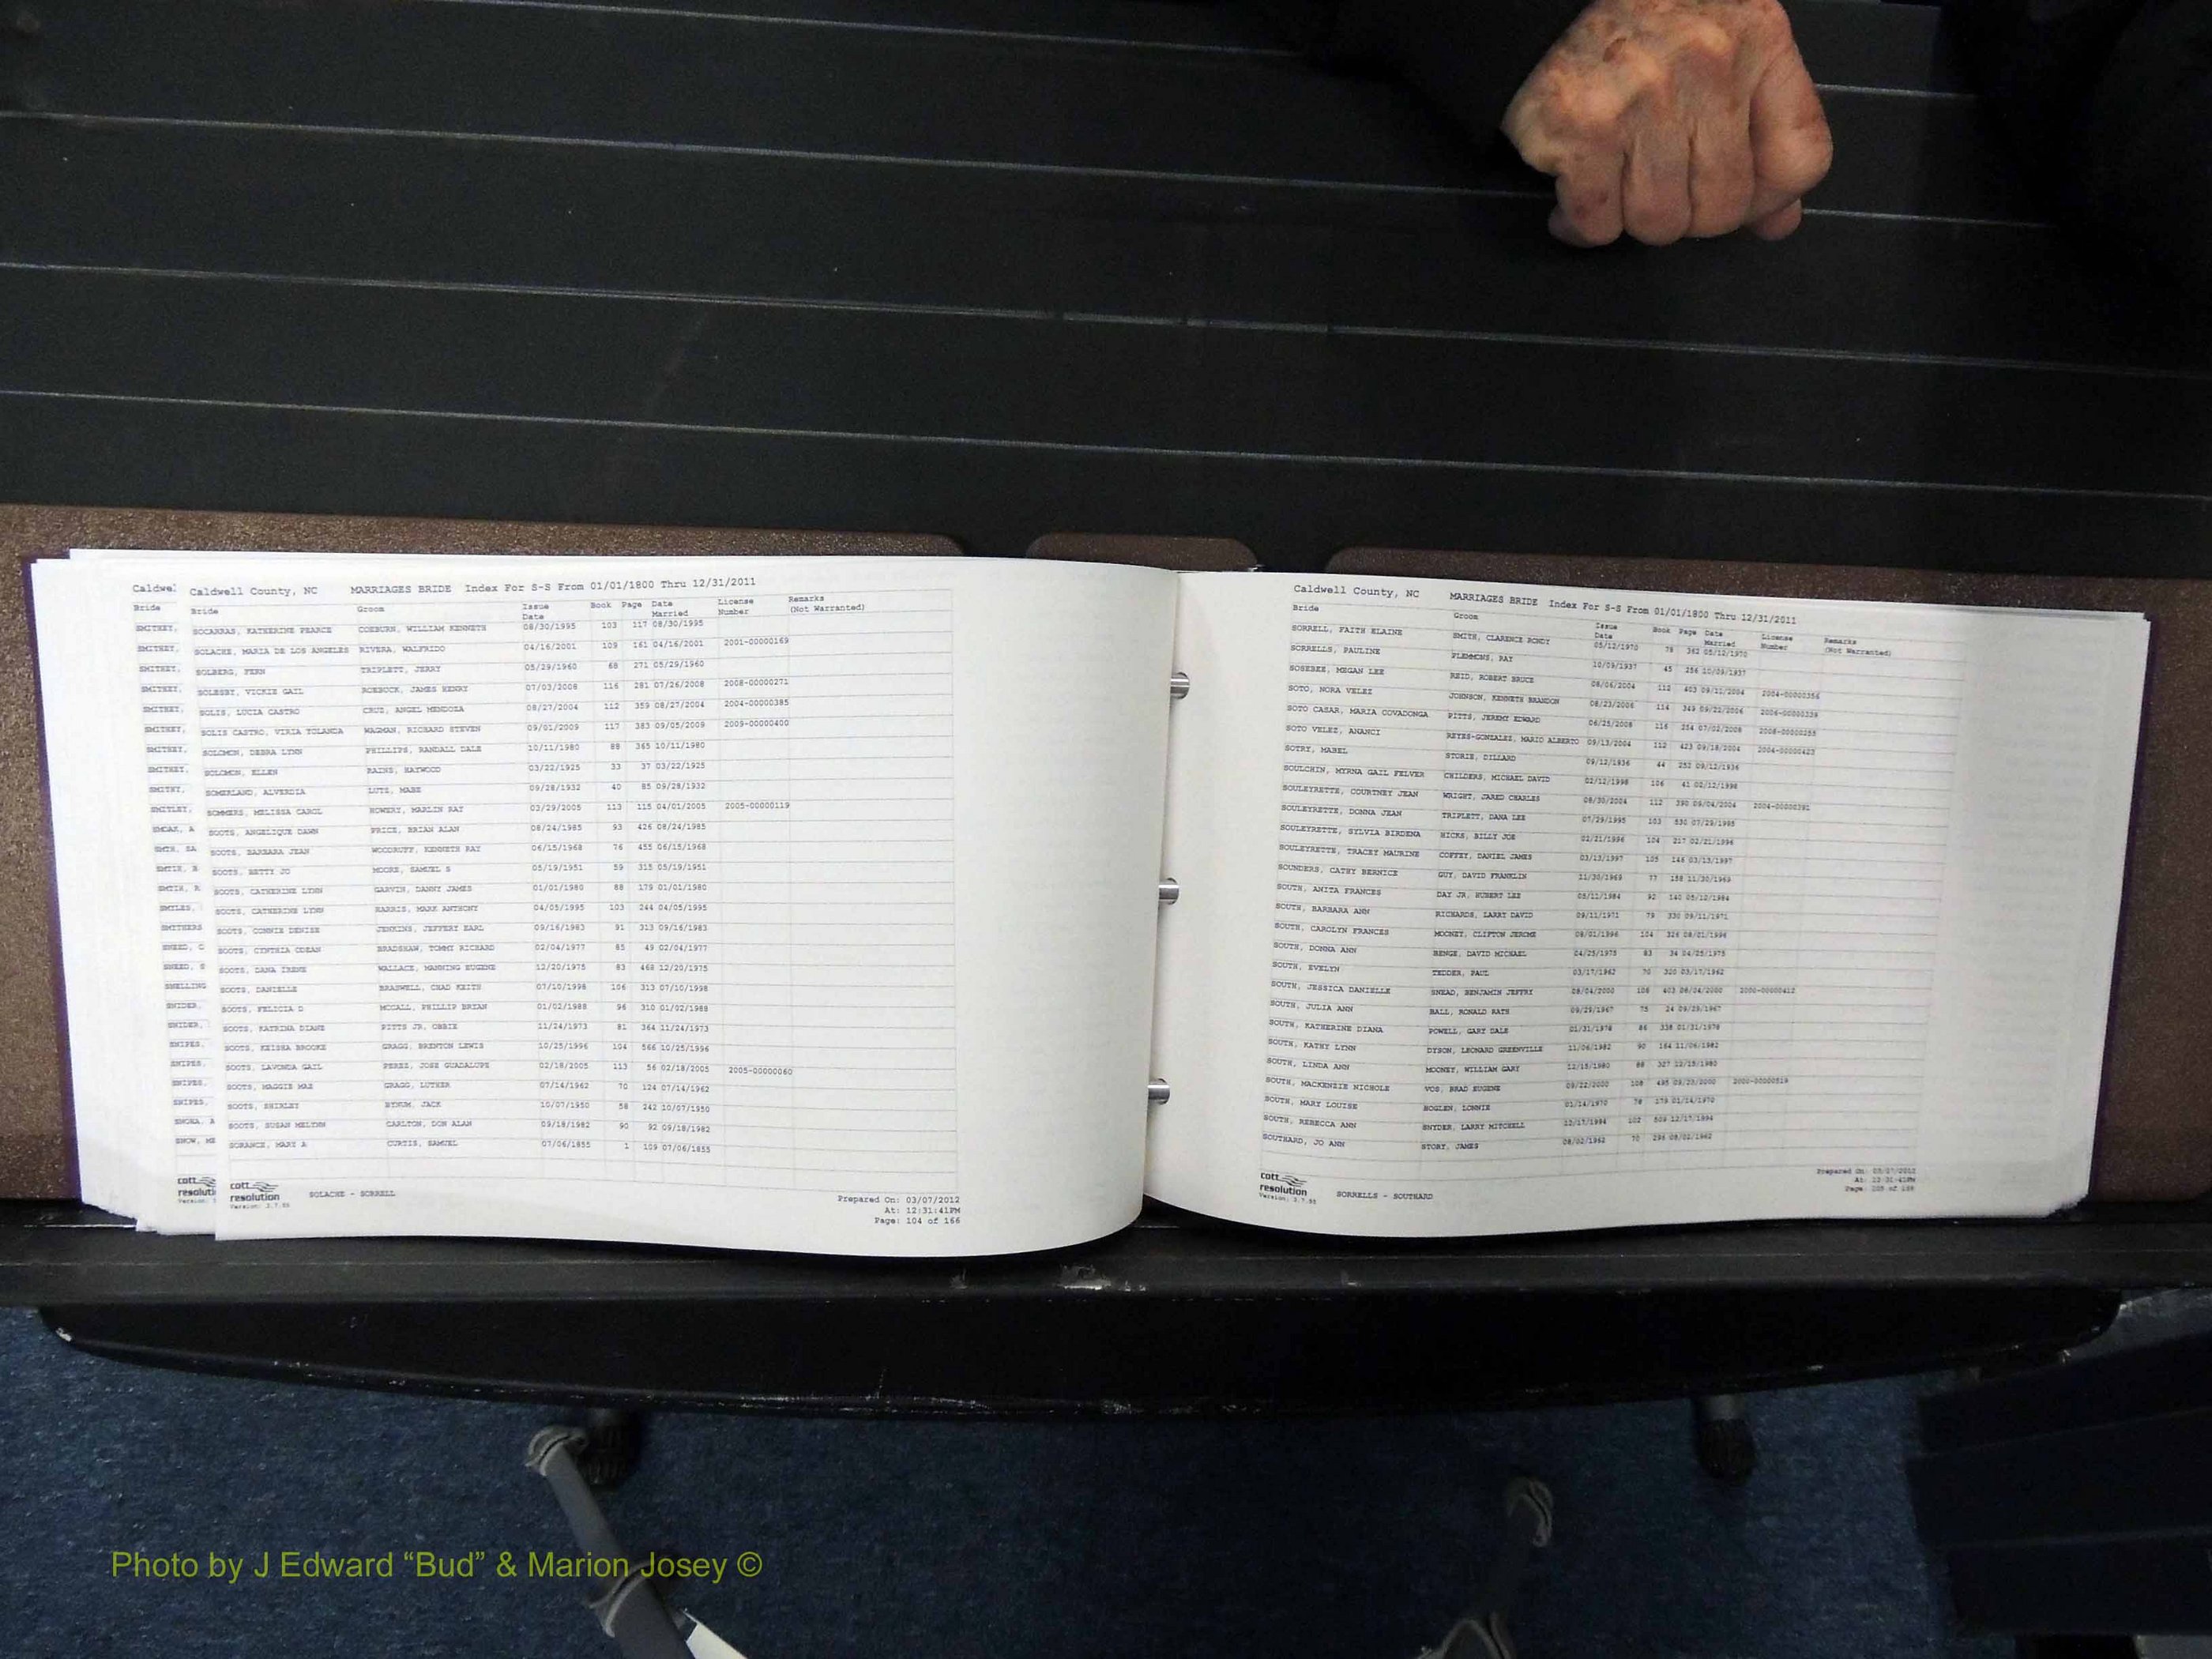 Caldwe
Bride
SMITHEY,
SMITHEY,
SMITHEY,
SMITHEY,
SMITHEY,
SMITHEY,
SMITHEY,
SMITHEY,
SMITHY,
SMITLEY,
SMOAK, A
SMTH, SA
SMTIH, R
SMTIH, R
SMYLES,
SMITHERS
SNEED, C
SNEED, S
SNELLING
SNIDER
SNIDER,
SNIPES,
SNIPES,
SNIPES,
SNIPES,
SNORA, A
SNOW, ME
cott
resoluti
Caldwell County, NC MARRIAGES BRIDE Index For S-S From 01/01/1800 Thru 12/31/2011
Bride Groom Issue Date Book Page Date Married License Number Remarks (Not Warranted)
SOCARRAS, KATHERINE PEARCE COEBURN, WILLIAM KENNETH 08/30/1995 103 117 08/30/1995
SOLACHE, MARIA DE LOS ANGELES RIVERA, WALFRIDO 04/16/2001 109 161 04/16/2001 2001-00000169
SOLBERG, FERN TRIPLETT, JERRY 05/29/1960 68 271 05/29/1960
SOLESBY, VICKIE GAIL ROEBOCK, JAMES HENRY 07/03/2008 116 281 07/26/2008 2008-00000271
SOLIS, LUCIA CASTRO CRUZ, ANGEL MENDOZA 08/27/2004 112 359 08/27/2004 2004-00000385
SOLIS CASTRO, VIRIA YOLANDA WAGMAN, RICHARD STEVEN 09/01/2009 117 383 09/05/2009 2009-00000400
SOLOMON, DEBRA LYNN PHILLIPS, RANDALL DALE 10/11/1980 88 365 10/11/1980
SOLOMON, ELLEN RAINS, HAYWOOD 03/22/1925 33 37 03/22/1925
SOMERLAND, ALVERDIA LUTZ, MABE 09/28/1932 40 85 09/28/1932
SOMMERS, MELISSA CAROL HOWERY, MARLIN RAY 03/29/2005 113 115 04/01/2005 2005-00000119
SOOTS, ANGELIQUE DAWN PRICE, BRIAN ALAN 08/24/1985 93 426 08/24/1985
SOOTS, BARBARA JEAN WOODRUFF, KENNETH RAY 06/15/1968 76 455 06/15/1968
SOOTS, BETTY JO MOORE, SAMUEL S 05/19/1951 59 315 05/19/1951
SOOTS, CATHERINE LYNN GARVIN, DANNY JAMES 01/01/1980 88 179 01/01/1980
SOOTS, CATHERINE LYNN HARRIS, MARK ANTHONY 04/05/1995 103 244 04/05/1995
SOOTS, CONNIE DENISE JENKINS, JEFFERY EARL 09/16/1983 91 313 09/16/1983
SOOTS, CYNTHIA ODEAN BRADSHAW, TOMMY RICHARD 02/04/1977 85 49 02/04/1977
SOOTS, DANA IRENE WALLACE, MANNING EUGENE 12/20/1975 83 468 12/20/1975
SOOTS, DANIELLE BRASWELL, CHAD KEITH 07/10/1998 106 313 07/10/1998
SOOTS, FELICIA D MCCALL, PHILLIP BRYAN 01/02/1988 96 310 01/02/1988
SOOTS, KATRINA DIANE PITTS JR, OBBIE 11/24/1973 81 364 11/24/1973
SOOTS, KEISHA BROOKE GRAGG, BRENTON LEWIS 10/25/1996 104 566 10/25/1996
SOOTS, LAVONDA GAIL PEREZ, JOSE GUADALUPE 02/18/2005 113 56 02/18/2005 2005-00000060
SOOTS, MAGGIE MAE GRAGG, LUTHER 07/14/1962 70 124 07/14/1962
SOOTS, SHIRLEY BYNUM, JACK 10/07/1950 58 242 10/07/1950
SOOTS, SUSAN MELYNN CARLTON, DON ALAN 09/18/1982 90 92 09/18/1982
SORANCE, MARY A CURTIS, SAMUEL 07/06/1855 1 109 07/06/1855
cott
resolution
Version: 3.7.55
SOLACHE - SORRELL
Prepared On: 03/07/2012
At: 12:31:41PM
Page: 104 of 166
Caldwell County, NC MARRIAGES BRIDE Index For S-S From 01/01/1800 Thru 12/31/2011
Bride Groom Issue Date Book Page Date Married License Number Remarks (Not Warranted)
SORRELL, FAITH ELAINE SMITH, CLARENCE RONDY 05/12/1970 78 362 05/12/1970
SORRELLS, PAULINE FLEMMONS, RAY 10/09/1937 45 256 10/09/1937
SOSEBEE, MEGAN LEE REID, ROBERT BRUCE 08/06/2004 112 403 09/11/2004 2004-00000356
SOTO, NORA VELEZ JOHNSON, KENNETH BRANDON 08/23/2006 114 349 09/22/2006
SOTO CASAR, MARIA COVADONGA PITTS, JEREMY EDWARD 06/25/2008 116 254 07/02/2008 2008-00000255
SOTO VELEZ, ANANCI REYES-GONZALEZ, MARIO ALBERTO 09/13/2004 112 423 09/18/2004 2004-00000423
SOTRY, MABEL STORIE, DILLARD 09/12/1936 44 252 09/12/1936
SOULCHIN, MYRNA GAIL FELVER CHILDERS, MICHAEL DAVID 02/12/1998 106 41 02/12/1998
SOULEYRETTE, COURTNEY JEAN WRIGHT, JARED CHARLES 08/30/2004 112 390 09/04/2004 2004-00000391
SOULEYRETTE, DONNA JEAN TRIPLETT, DANA LEE 07/29/1995 103 530 07/29/1995
SOULEYRETTE, SYLVIA BIRDENA HICKS, BILLY JOE 02/21/1996 104 217 02/21/1996
SOULEYRETTE, TRACEY MAURINE COFFEY, DANIEL JAMES 03/13/1997 105 146 03/13/1997
SOUNDERS, CATHY BERNICE GUY, DAVID FRANKLIN 11/30/1969 77 158 11/30/1969
SOUTH, ANITA FRANCES DAY JR, HUBERT LEE 05/12/1984 92 140 05/12/1984
SOUTH, BARBARA ANN RICHARDS, LARRY DAVID 09/11/1971 79 330 09/11/1971
SOUTH, CAROLYN FRANCES MOONEY, CLIFTON JEROME 08/01/1996 104 326 08/01/1996
SOUTH, DONNA ANN BENGE, DAVID MICHAEL 04/25/1975 83 34 04/25/1975
SOUTH, EVELYN TEDDER, PAUL 03/17/1962 70 320 03/17/1962
SOUTH, JESSICA DANIELLE SNEAD, BENJAMIN JEFFRY 08/04/2000 108 403 08/04/2000 2000-00000412
SOUTH, JULIA ANN BALL, RONALD RATH 09/29/1967 75 24 09/29/1967
SOUTH, KATHERINE DIANA POWELL, GARY DALE 01/31/1978 86 338 01/31/1978
SOUTH, KATHY LYNN DYSON, LEONARD GREENVILLE 11/06/1982 90 164 11/06/1982
SOUTH, LINDA ANN MOONEY, WILLIAM GARY 12/15/1980 88 327 12/15/1980
SOUTH, MACKENZIE NICHOLE VOS, BRAD EUGENE 09/22/2000 108 495 09/23/2000 2000-00000519
SOUTH, MARY LOUISE BOGLEN, LONNIE 01/14/1970 78 179 01/14/1970
SOUTH, REBECCA ANN SNYDER, LARRY MITCHELL 12/17/1994 102 509 12/17/1994
SOUTHARD, JO ANN STORY, JAMES 08/02/1962 70 295 08/02/1962
cott
resolution
Version: 3.7.55
SORRELLS - SOUTHARD
Prepared On: 03/07/2012
At: 12:31:41PM
Photo by J Edward “Bud” & Marion Josey ©